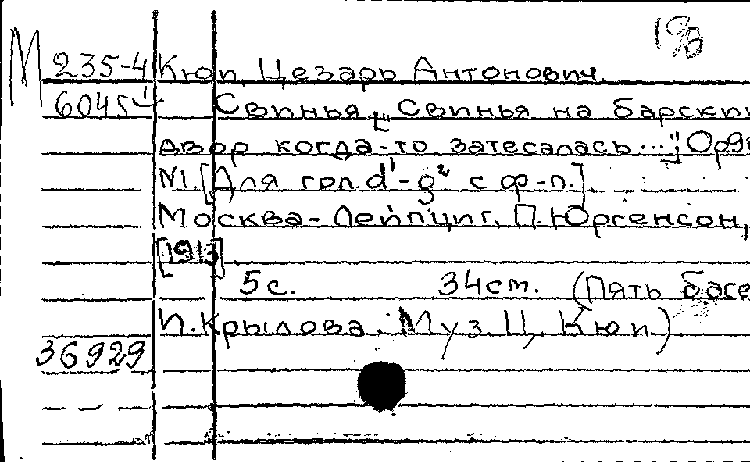 М 235-4 Кюи, Цезарь Антонович.
6045 Свинья. ["Свинья на барский
двор когда-то затесалась..."] Ор
N1. [Для гол. d¹-g² с ф-п.]
Москва-Лейпциг, П. Юргенсон,
[1913]
5с. 34см. (Пять басе
И. Крылова. Муз. Ц. Кюи)
36929